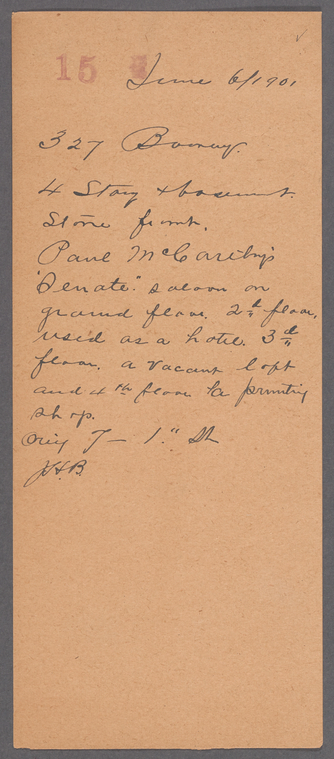 15
June 6/1901
327 Bowery.
4 Story & basement.
Stone front.
Paul McCarthy's
"Senate" saloon on
ground floor. 2d floor,
used as a hotel. 3d
floor. a vacant loft
and 4th floor a printing
shop.
7 - 1st St